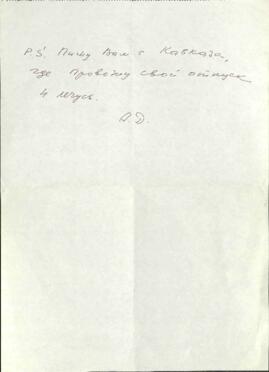 P.S. Пишу Вам с Кавказа,
где провожу свой отпуск
и лечусь.
А.Д.